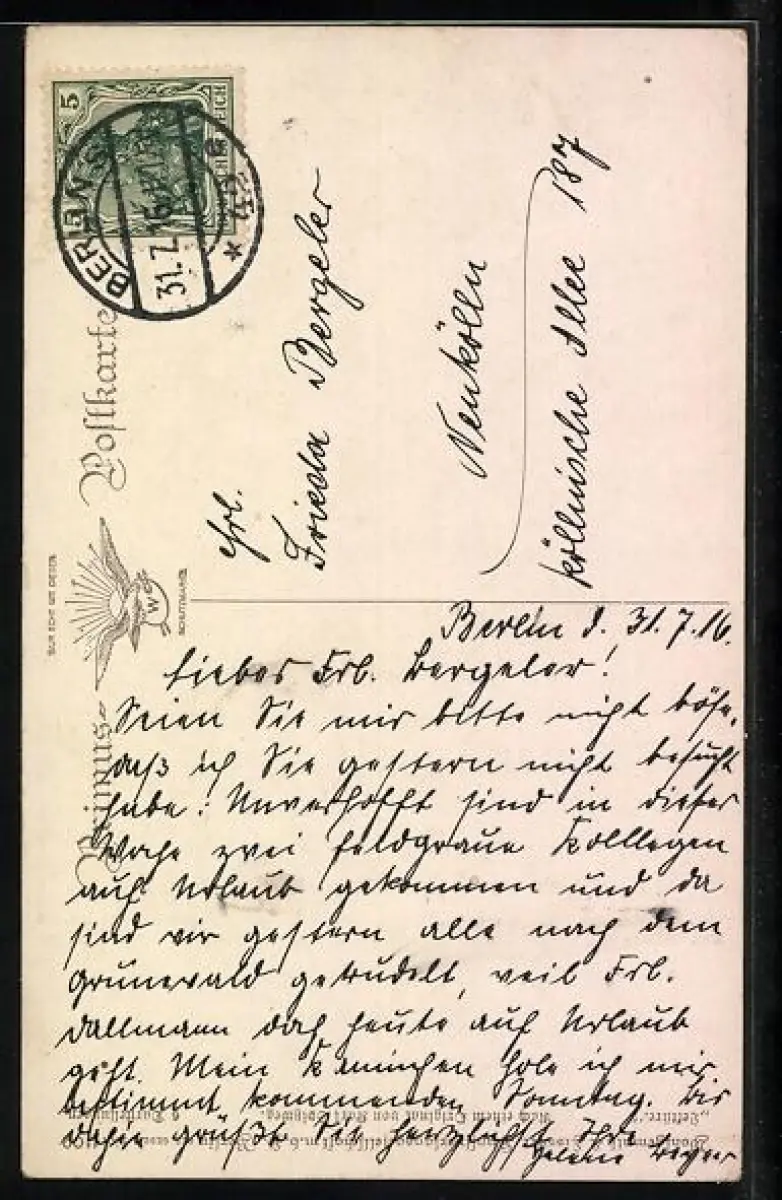 5
DEUTSCHES REICH
BERLIN S
31.7.16
Postkarte
Primus-
NUR ECHT MIT DIESER
W
SCHUTZMARKE
Frl.
Frieda Bergeler
Neukölln
köllnische Allee 187
Berlin d. 31.7.16.
Liebes Frl. Bergeler!
Seien Sie mir bitte nicht böse,
daß ich Sie gestern nicht besucht
habe. Unverhofft sind in dieser
Woche zwei feldgraue Kolllegen
auf Urlaub gekommen und da
sind wir gestern alle nach dem
Grunewald getrudelt, weil Frl.
Dallmann doch heute auf Urlaub
geht. Mein Kaninchen hole ich mir
bestimmt kommenden Sonntag. Bis
dahin grüßt Sie herzlichst Ihre
Helene
"Lektüre." Nach einem Original von